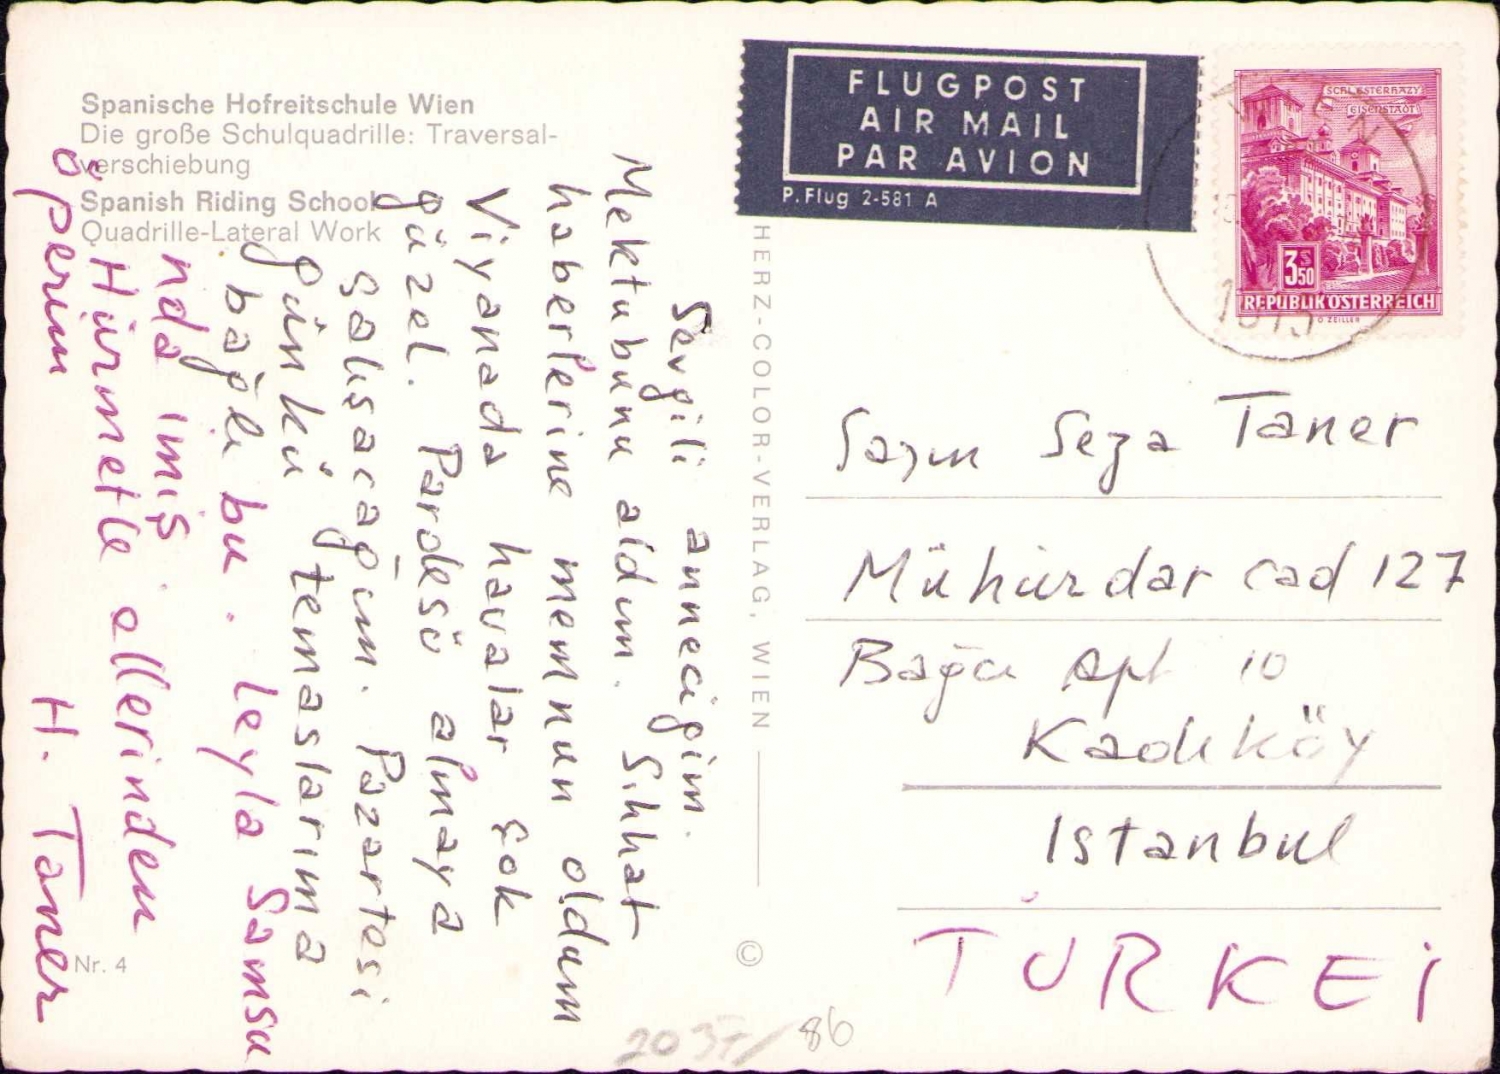 Spanische Hofreitschule Wien
Die große Schulquadrille: Traversal-
verschiebung
Spanish Riding School
Quadrille-Lateral Work
FLUGPOST
AIR MAIL
PAR AVION
P. Flug 2-581 A
SCHL. ESTERHAZY
EISENSTADT
3 S 50
REPUBLIK ÖSTERREICH
O. ZEILLER
WIEN
HERZ-COLOR-VERLAG, WIEN
Sevgili anneciğim.
Mektubunu aldım. Sıhhat
haberlerine memnun oldum
Viyanada havalar çok
güzel. Pardesü almaya
çalışacağım. Pazartesi
günkü temaslarıma
bağlı bu. Leyla Samsu
nda imiş
Hürmetle ellerinden
öperim
H. Taner
Sayın Seza Taner
Mühürdar cad 127
Apt 10
Kadıköy
Istanbul
TÜRKEI
Nr. 4
©
86